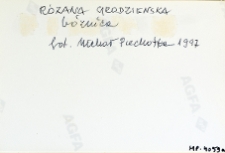 RÓŻANA GRODZIEŃSKA
bóżnica
fot. Michał Piechotka 1997
AGFA
AGFA